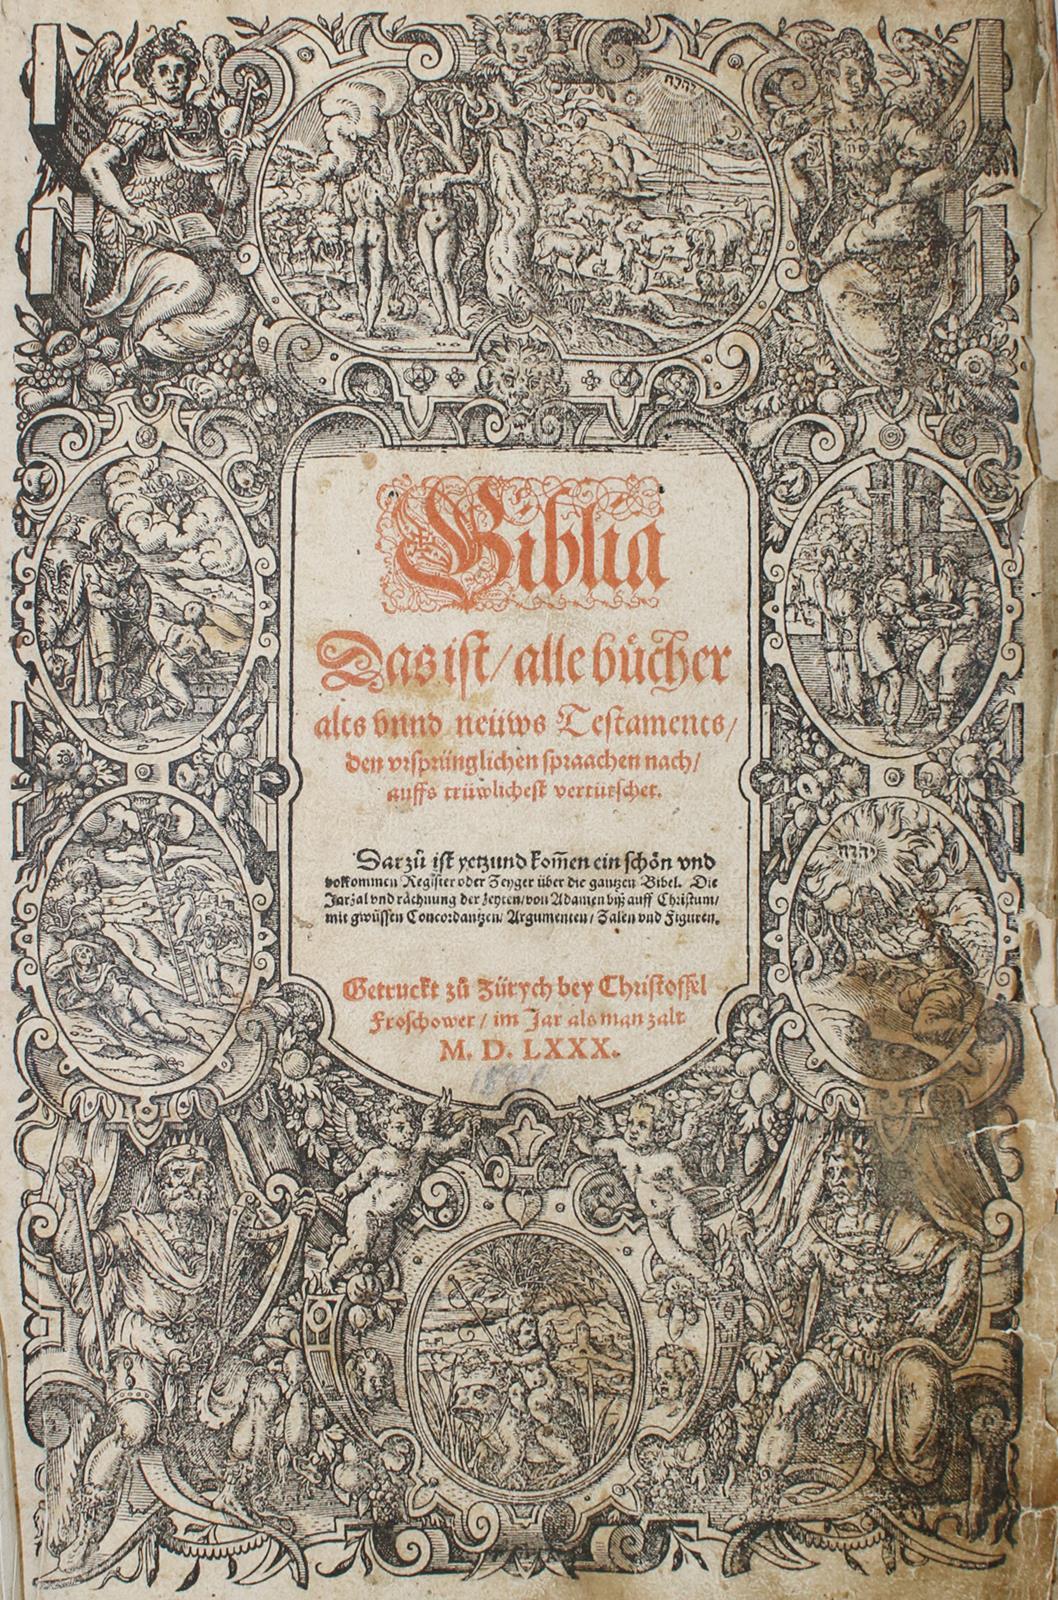 יהוה
Biblia
Das ist / alle bücher
alts vnnd neüws Testaments /
den vrsprünglichen spraachen nach /
auffs trüwlichest vertütschet.
Darzů ist yetzund kom̃en ein schön vnd
volkommen Register oder Zeyger über die gantzen Bibel. Die
Jarzal vnd råchnung der zeyten / von Adamen biß auff Christum /
mit gwüssen Concordantzen / Argumenten / Zalen vnd Figuren.
יהוה
Getruckt zů Zürych bey Christoffel
Froschower / im Jar als man zalt
M. D. LXXX.